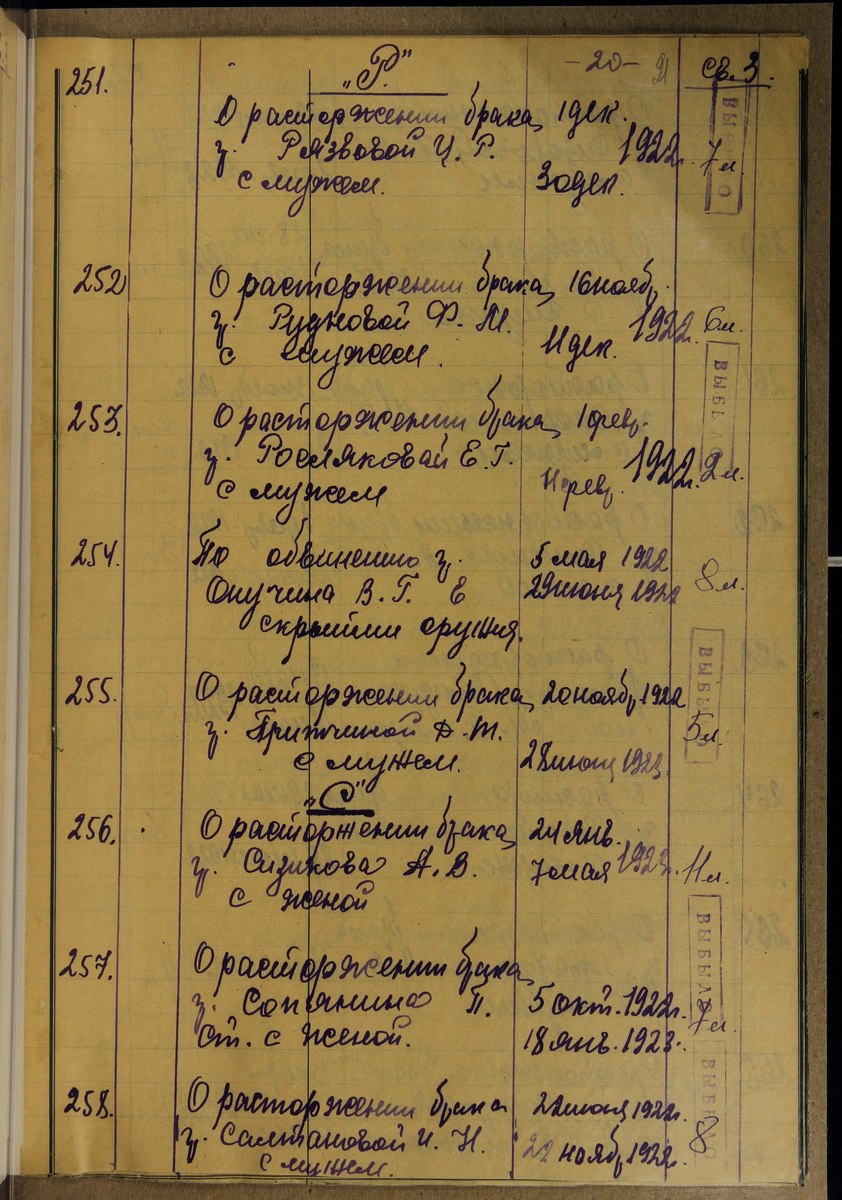 „Р." -20- 21 св. 3.
251.
О расторжении брака 1 дек.
г. Рязвовой Ц. Р. 1922 г. 7 л.
с мужем. 30 дек.
ВЫБЫЛО
252 О расторжении брака 16 ноябр.
г. Рудновой Ф. М. 1922 г. 6 л.
с мужем. 11 дек.
ВЫБЫЛО
253. О расторжении брака 1 февр.
г. Росляковой Е. Г. 1922 г. 2 л.
с мужем 11 февр.
254. По обвинению г. 5 мая 1922
Опучина В. Г. Е 29 июня 1922 8 л.
скрытии оружия.
ВЫБЫЛО
255. О расторжении брака 20 ноябр 1922
г. Притчиной Д. Т. 5 л.
с мужем. 28 июня 1923.
„С"
256. О расторжении брака 24 янв.
г. Сизикова А. В. 7 мая 1923 г. 11 л.
с женой
ВЫБЫЛО
257. О расторжении брака
г. Сопянина П. 5 окт. 1922 г. 7 л.
Ст. с женой. 18 янв. 1923.
ВЫБЫЛО
258. О расторжении брака 22 июля 1922 г.
г. Салтановой И. Н. 22 ноябр 1922 г. 8
с мужем.